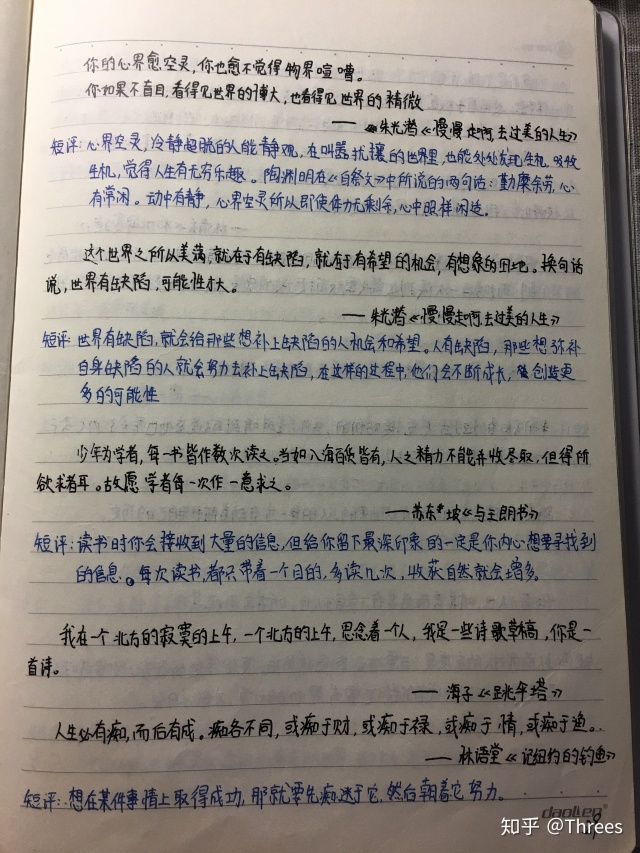 你的心界愈空灵,你也愈不觉得物界喧嘈。
你如果不盲目,看得见世界的博大,也看得见世界的精微
——朱光潜《慢慢走啊 去过美的人生》
短评:心界空灵,冷静超脱的人能静观,在叫嚣扰攘的世界里,也能处处发现生机,吸收
生机,觉得人生有无穷乐趣。陶渊明在《自祭文》中所说的两句话:勤靡余劳,心
有常闲。动中有静,心界空灵所以即使体力无剩余,心中照样闲适。
这个世界之所以美满,就在于有缺陷,就在于有希望的机会,有想象的田地。换句话
说,世界有缺陷,可能性才大。
——朱光潜《慢慢走啊 去过美的人生》
短评:世界有缺陷,就会给那些想补上缺陷的人机会和希望。人有缺陷,那些想弥补
自身缺陷的人就会努力去补上缺陷,在这样的过程中,他们会不断成长,创造更
多的可能性
少年为学者,每一书皆作数次读之。当如入海百货皆有,人之精力不能并收尽取,但得所
欲求者耳。故愿学者每一次作一意求之。
——苏东坡《与王朗书》
短评:读书时你会接收到大量的信息,但给你留下最深印象的一定是你内心想要寻找到
的信息。每次读书,都只带着一个目的,多读几次,收获自然就会增多。
我在一个北方的寂寞的上午,一个北方的上午,思念着一个人,我是一些诗歌草稿,你是一
首诗。
——海子《跳伞塔》
人生必有痴,而后有成。痴各不同,或痴于财,或痴于禄,或痴于情,或痴于渔。
——林语堂《记纽约的钓鱼》
短评:想在某件事情上取得成功,那就要先痴迷于它,然后朝着它努力。
知乎 @Threes